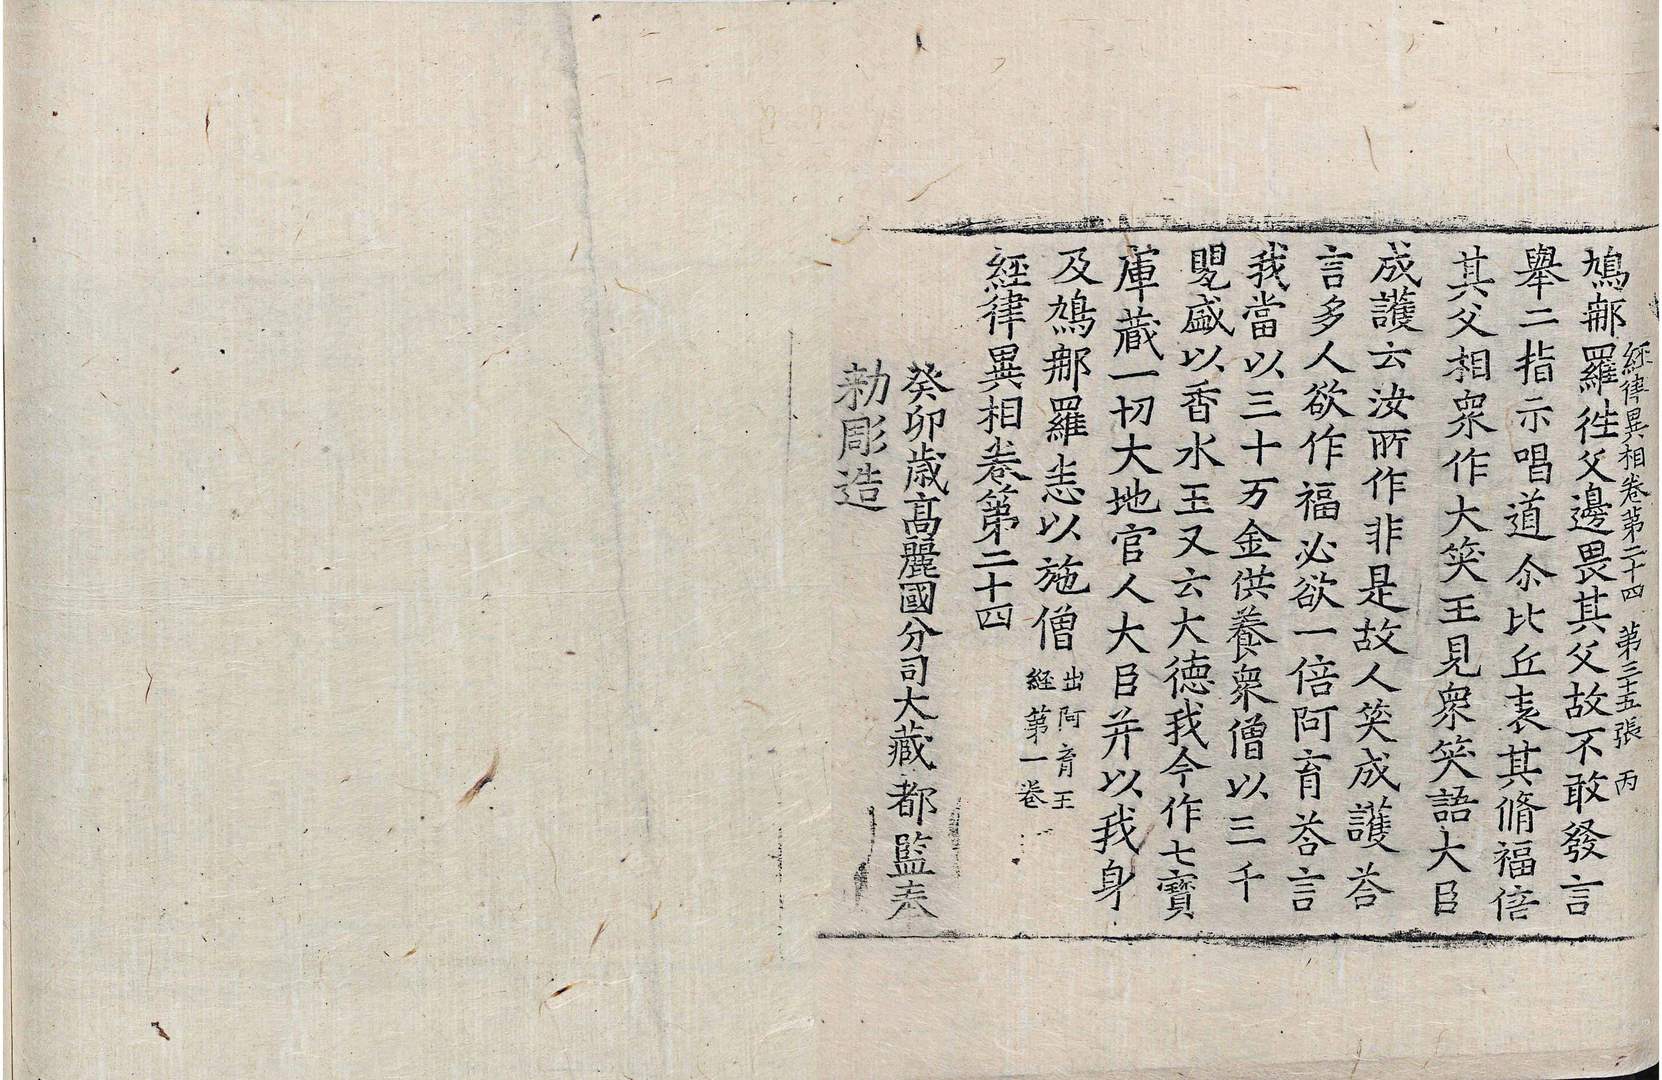 經律異相卷第二十四　第三十五張　丙
鳩郍羅徃父邊畏其父故不敢發言
舉二指示唱道尒比丘表其脩福倍
其父相衆作大笑王見衆笑語大臣
成護云汝所作非是故人笑成護荅
言多人欲作福必欲一倍阿育荅言
我當以三十万金供養衆僧以三千
甖盛以香水王又云大德我今作七寶
庫藏一切大地官人大臣并以我身
及鳩郍羅恚以施僧出阿育王經第一卷
經律異相卷第二十四
癸卯歳高麗國分司大藏都監奉
勑彫造